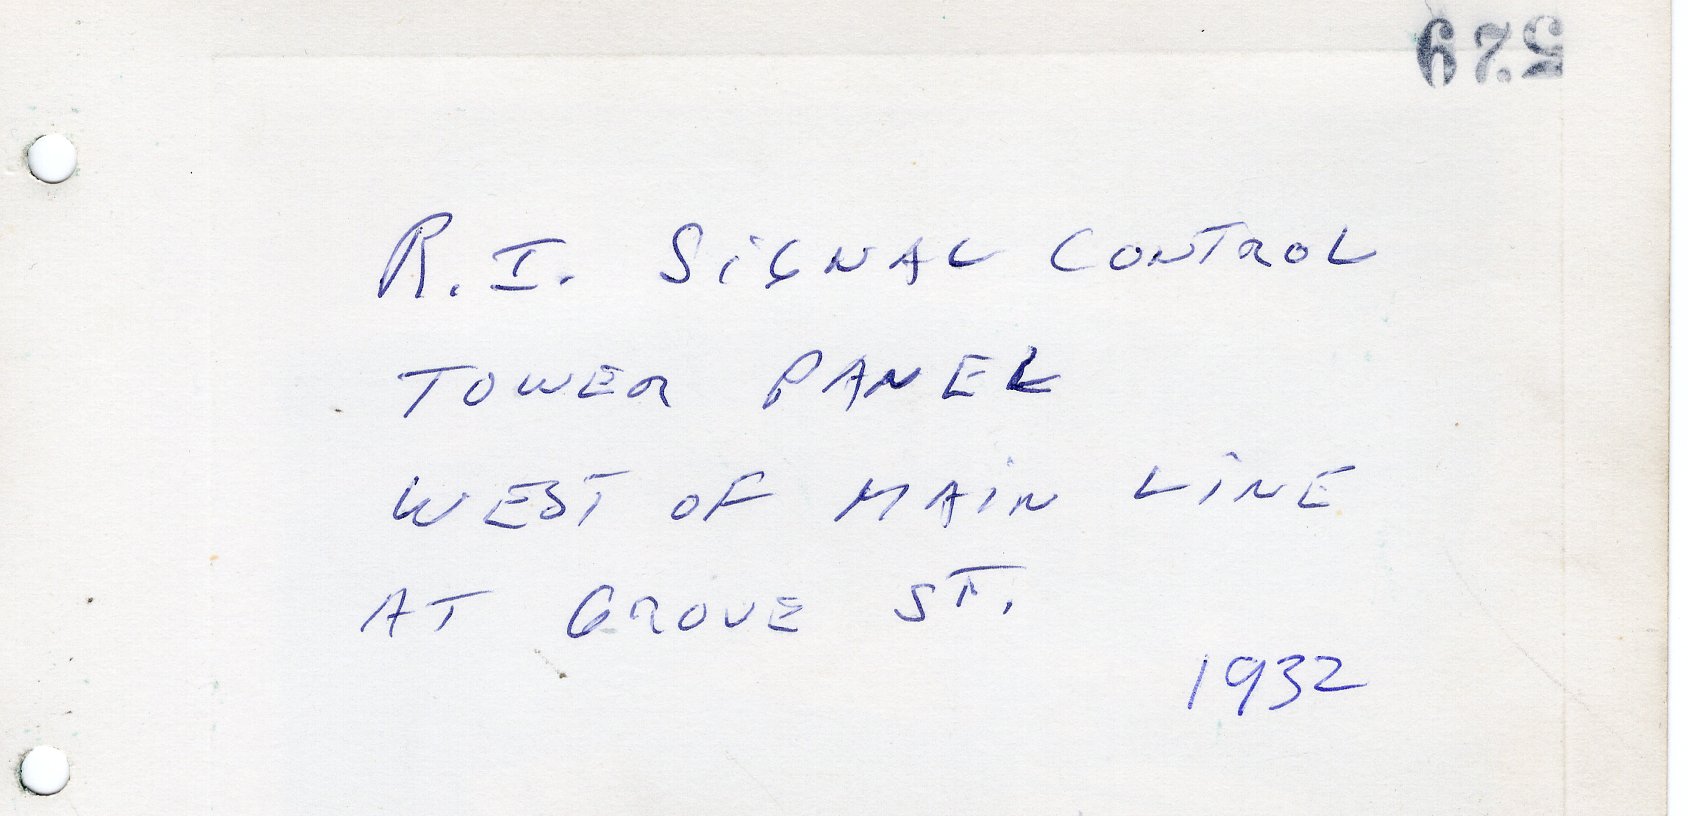 529
R.I. SiGNAL CONTROL
TOWER PANEL
WEST OF MAiN LiNE
AT GROVE ST.
1932